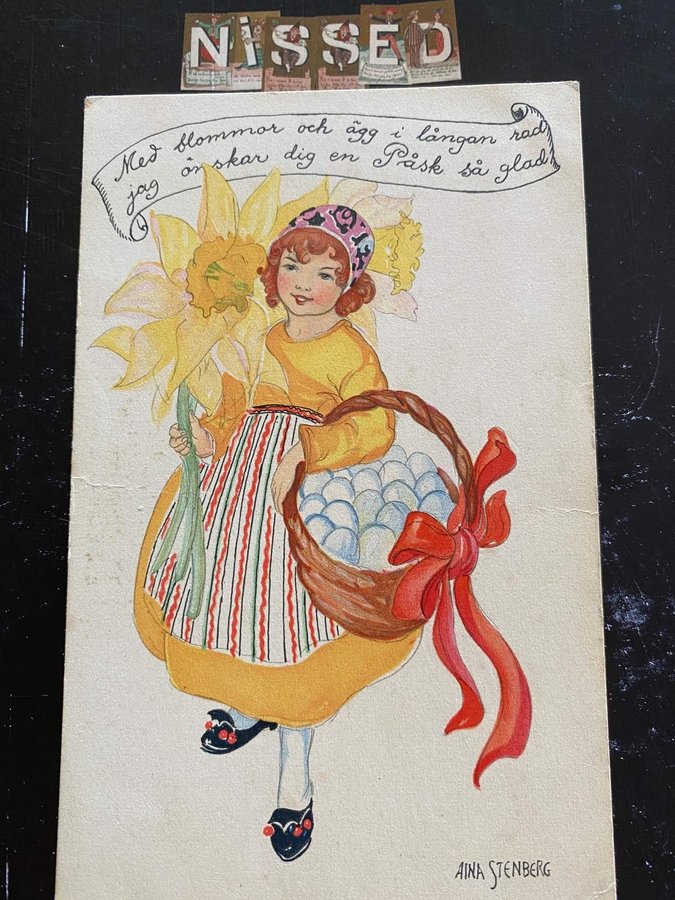 NiSSED
Med blommor och ägg i långan rad
jag önskar dig en Påsk så glad
AINA STENBERG